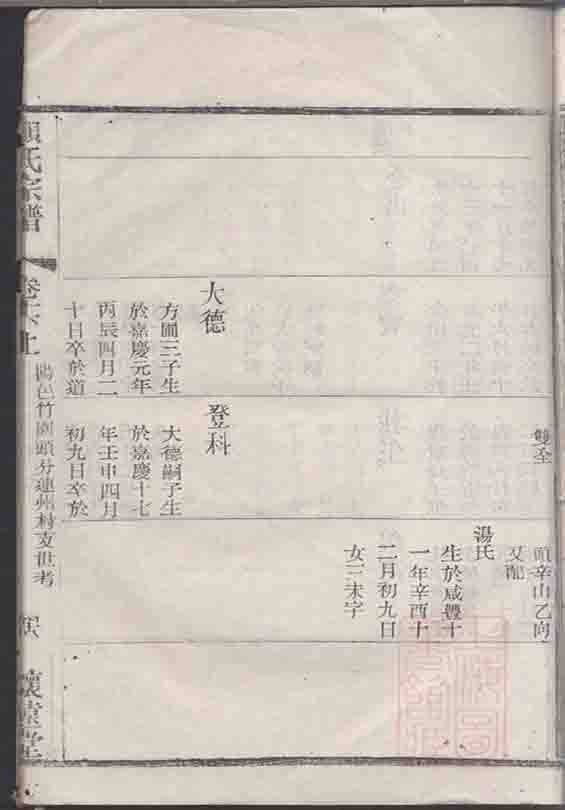 雙全
頭辛山乙向
又配
湯氏
生於咸豐十
一年辛酉十
二月初九日
女三未字
大德
方圃三子生
於嘉慶元年
丙辰四月二
十日卒於道
登科
大德嗣子生
於嘉慶十七
年壬申四月
初九日卒於
顧氏宗譜
卷六上
陽邑竹園頭分連州村支世考
懷遠堂